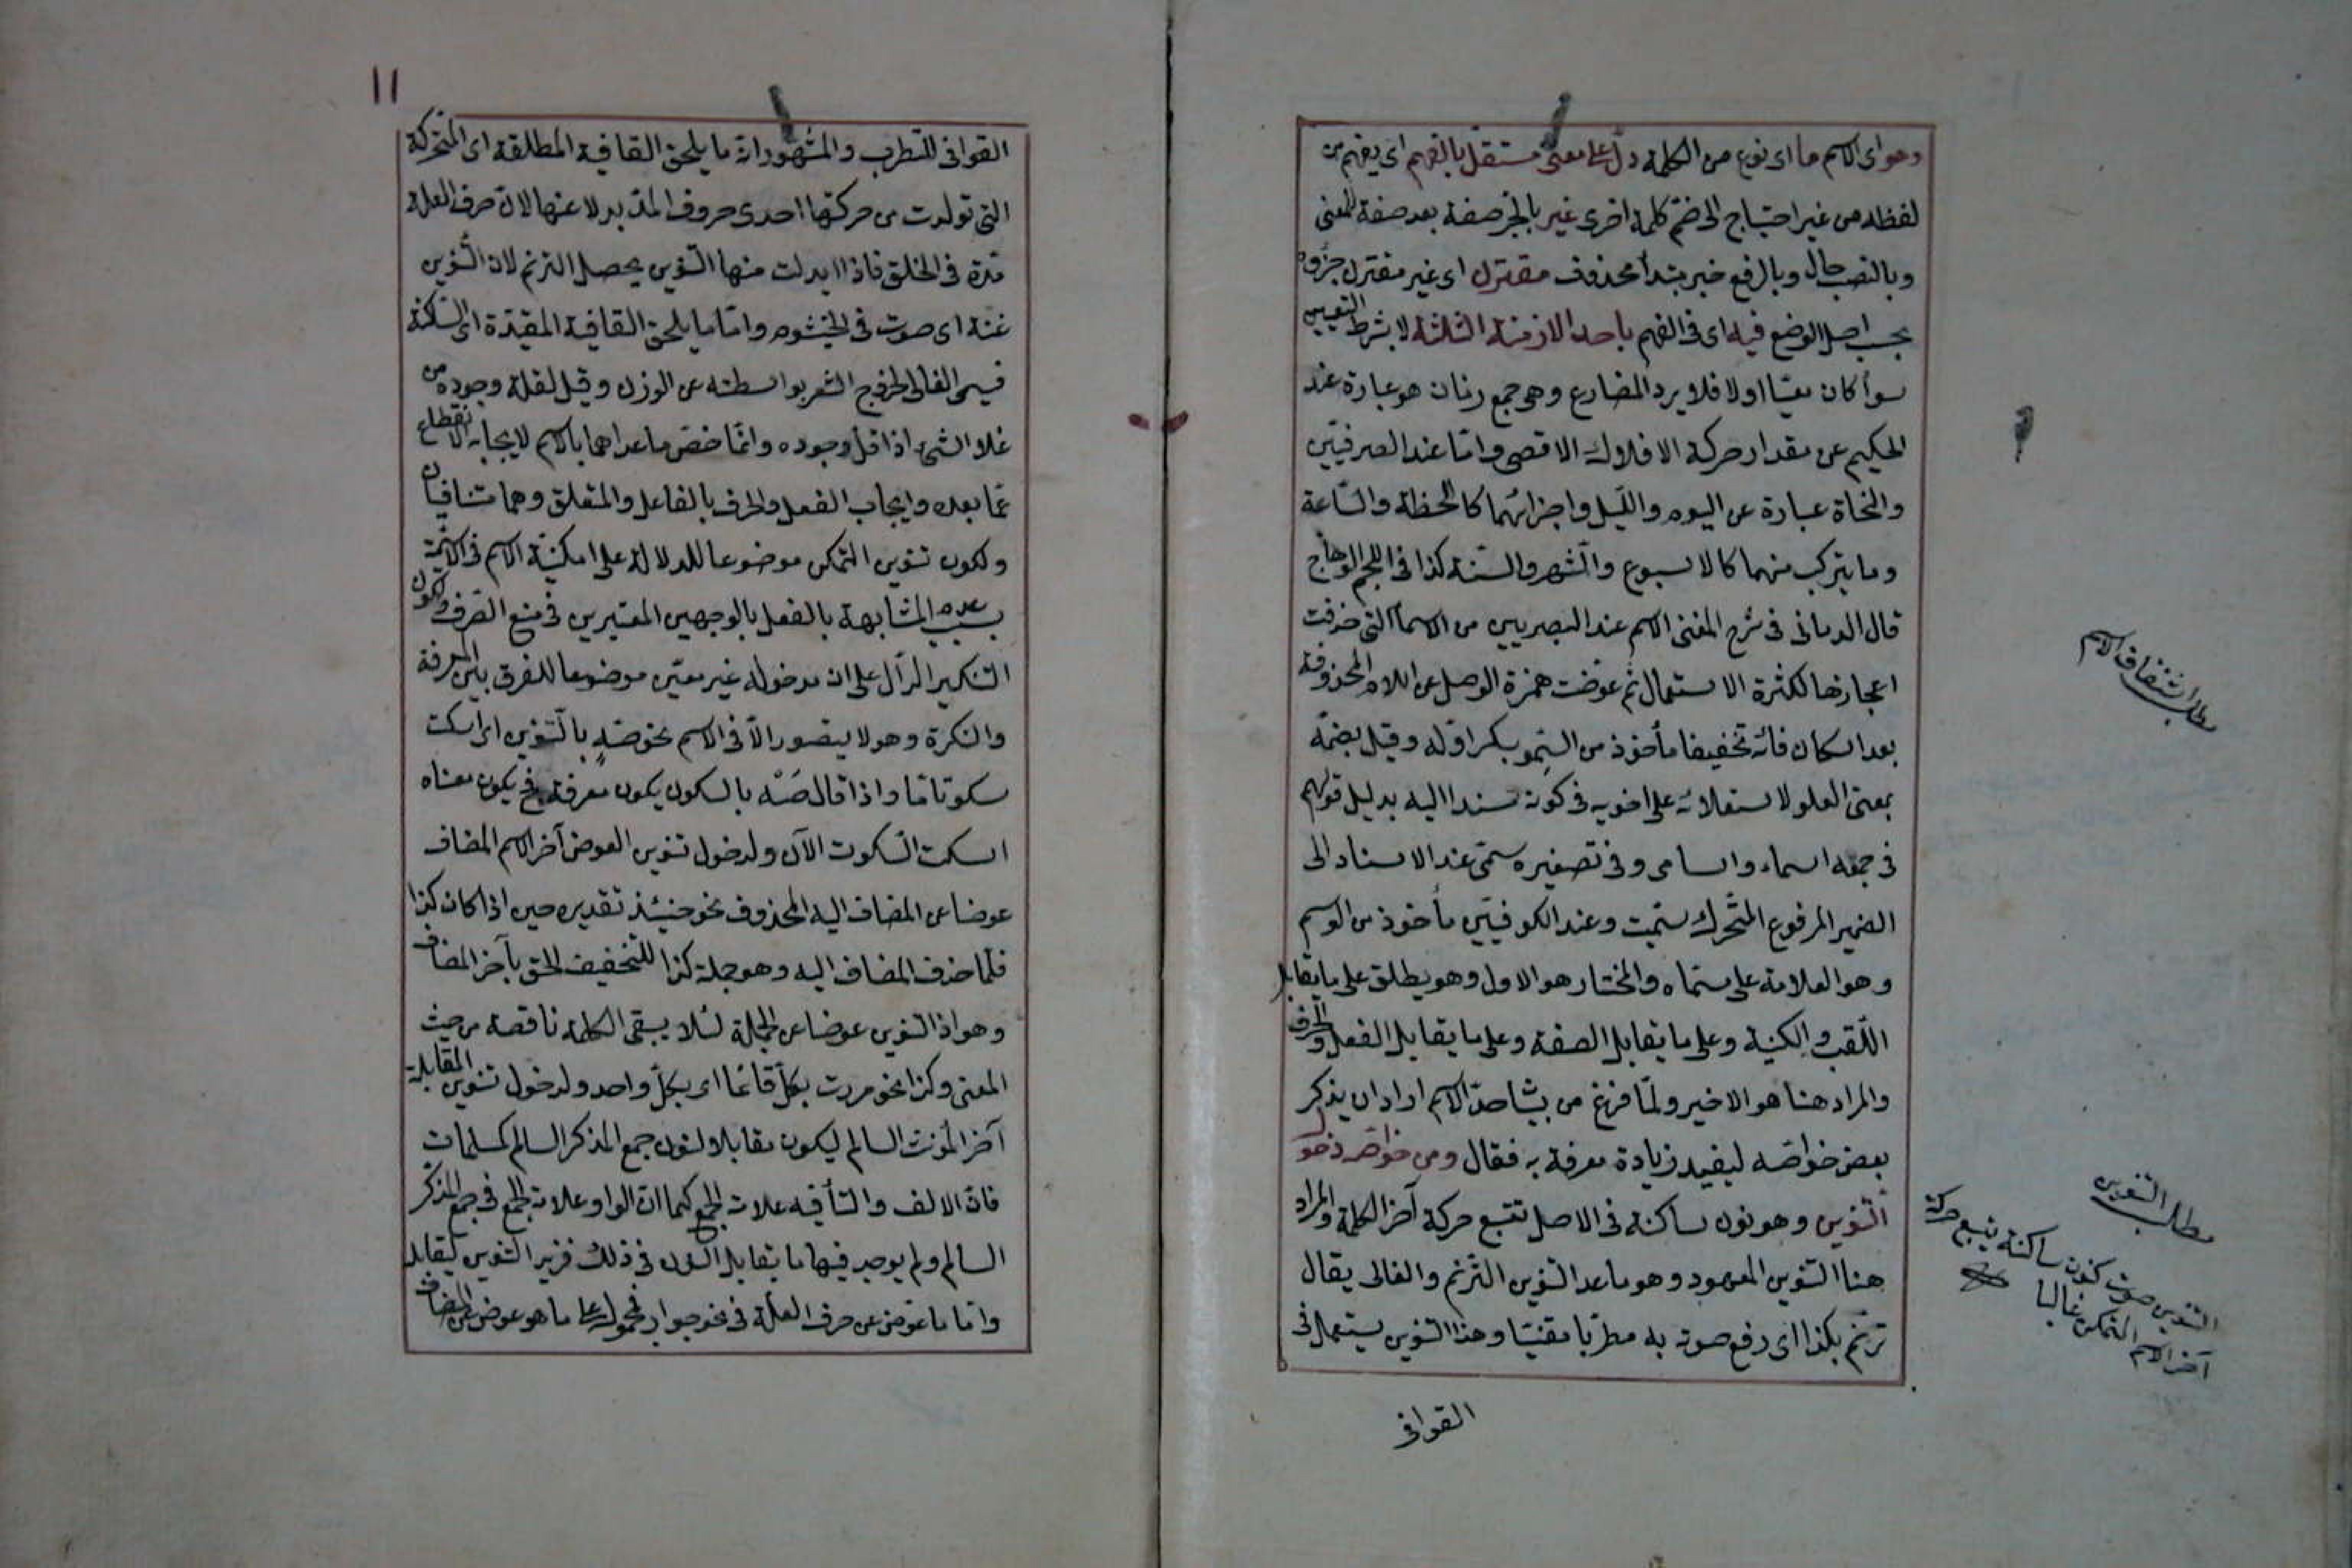 وهو اى الاسم ما اى نوع من الكلمة دل على معنى مستقل بالفهم اى يفهم من
لفظه من غير احتياج الى ضم كلمة اخرى غير بالجر صفة بعد صفة للمعنى
وبالنصب حال وبالرفع خبر مبتدأ محذوف مقترن اى غير مقترن جزؤه
بحسب اصل الوضع فيه اى فى الفهم باحد الازمنة الثلثة لا بشرط التعيين
سوأ كان معينا اولا فلا يرد المضارع وهى جمع زمان هو عبارة عند
الحكيم عن مقدار حركة الافلاك الاقصى واما عند الصرفيين
والنحاة عبارة عن اليوم والليل واجزائهما كالحظة والساعة
وما يتركب منهما كالاسبوع والشهر والسنة كذا فى النجم الوهاج
قال الدمانى فى شرح المغنى الاسم عند البصريين من الاسمآ التى حذفت
اعجازها لكثرة الاستعمال ثم عوضت همزة الوصل عن اللام المحذوفة
بعد اسكان فائه تخفيفا مأخوذ من السمو بكسر اوله وقيل بضمه
بمعنى العلو لاستعلائه على اخويه فى كونه مسندا اليه بدليل قولهم
فى جمعه اسماء واسامى وفى تصغيره سمى عند الاسناد الى
الضمير المرفوع المتحرك سميت وعند الكوفيين مأخوذ من الوسم
وهو العلامة على مسماه والمختار هو الاول وهو يطلق على ما يقابل
اللقب والكنية وعلى ما يقابل الصفة وعلى ما يقابل الفعل والحرف
والمراد هنا هو الاخير ولما فرغ من بيان حد الاسم اراد ان يذكر
بعض خواصه ليفيد زيادة معرفة به فقال ومن خواصه دخول
التنوين وهو نون ساكنة فى الاصل تتبع حركة آخر الكلمة والمراد
هنا التنوين المعهود وهو ما عد التنوين الترنم والغالى يقال
ترنم بكذا اى رفع صوته به مطربا مغنيا وهذا التنوين يستعمل فى
القوافى
مطلب اشتقاق الاسم
مطلب التنوين
التنوين صوت كنون ساكنة يتبع حركة
آخر الاسم المتمكن غالبا
١١
القوافى للتطرب والمشهور انه ما يلحق القافية المطلقة اى المتحركة
التى تولدت من حركتها احدى حروف المد بدلا عنها لان حرف العلة
مدة فى الحلق فاذا ابدلت منها التنوين يحصل الترنم لان التنوين
غنة اى صوت فى الخيشوم واما ما يلحق القافية المقيدة اى الساكنة
فيسمى الغالى لخروج الشعر بواسطته عن الوزن وقيل لقلة وجوده من
غلا الشئ اذا قل وجوده وانما خص ما عداهما بالاسم لايجابه الانقطاع
عما بعده وايجاب الفعل والحرف بالفاعل والمتعلق وهما متنافيان
ولكون تنوين التمكن موضوعا للدلالة على امكنية الاسم فى الاسمية
بسبب عدم المشابهة بالفعل بالوجهين المعتبرين فى منع الصرف ولكون
التنكير الدال على ان مدخوله غير معين موضوعا للفرق بين المعرفة
والنكرة وهو لا يتصور الا فى الاسم نحو صه بالتنوين اى اسكت
سكوتا ما واذا قال صه بالسكون يكون معرفة فح يكون معناه
اسكت السكوت الآن ولدخول تنوين العوض آخر الاسم المضاف
عوضا عن المضاف اليه المحذوف نحو حينئذ تقديره حين اذا كان كذا
فلما حذف المضاف اليه وهو جملة كذا للتخفيف الحق بآخر المضاف
وهو اذ التنوين عوضا عن الجملة لئلا يبقى الكلمة ناقصة من حيث
المعنى وكذا نحو مررت بكل قائما اى بكل واحد ولدخول تنوين المقابلة
آخر المؤنث السالم ليكون مقابلا لنون جمع المذكر السالم كمسلمات
فان الالف والتأ فيه علامة الجمع كما ان الواو علامة الجمع فى جمع المذكر
السالم ولم يوجد فيها ما يقابل النون فى ذلك فزيد التنوين ليقابله
واما ما عوض عن حرف العلة فى نحو جوار فمحمول على ما هو عوض عن المضاف